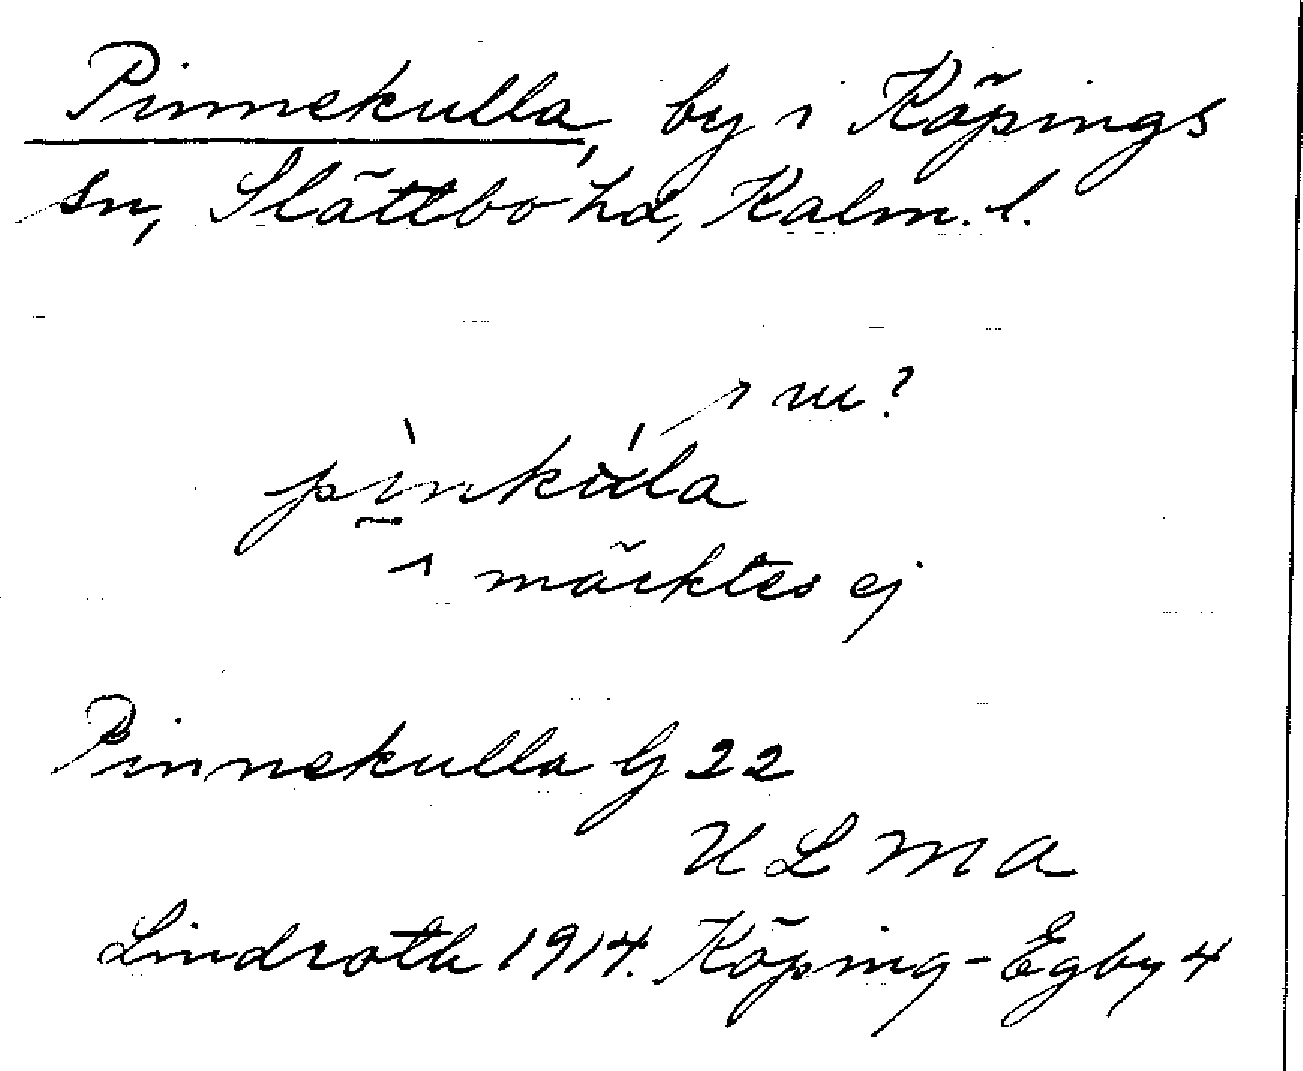 Pinnekulla, by i Köpings
sn, Slättbo hd, Kalm. l.
i ... ?
pìnkúla
^ märktes ej
Pinnekulla Gj 22
ULMA
Lindroth 1914. Köping-Egby 4